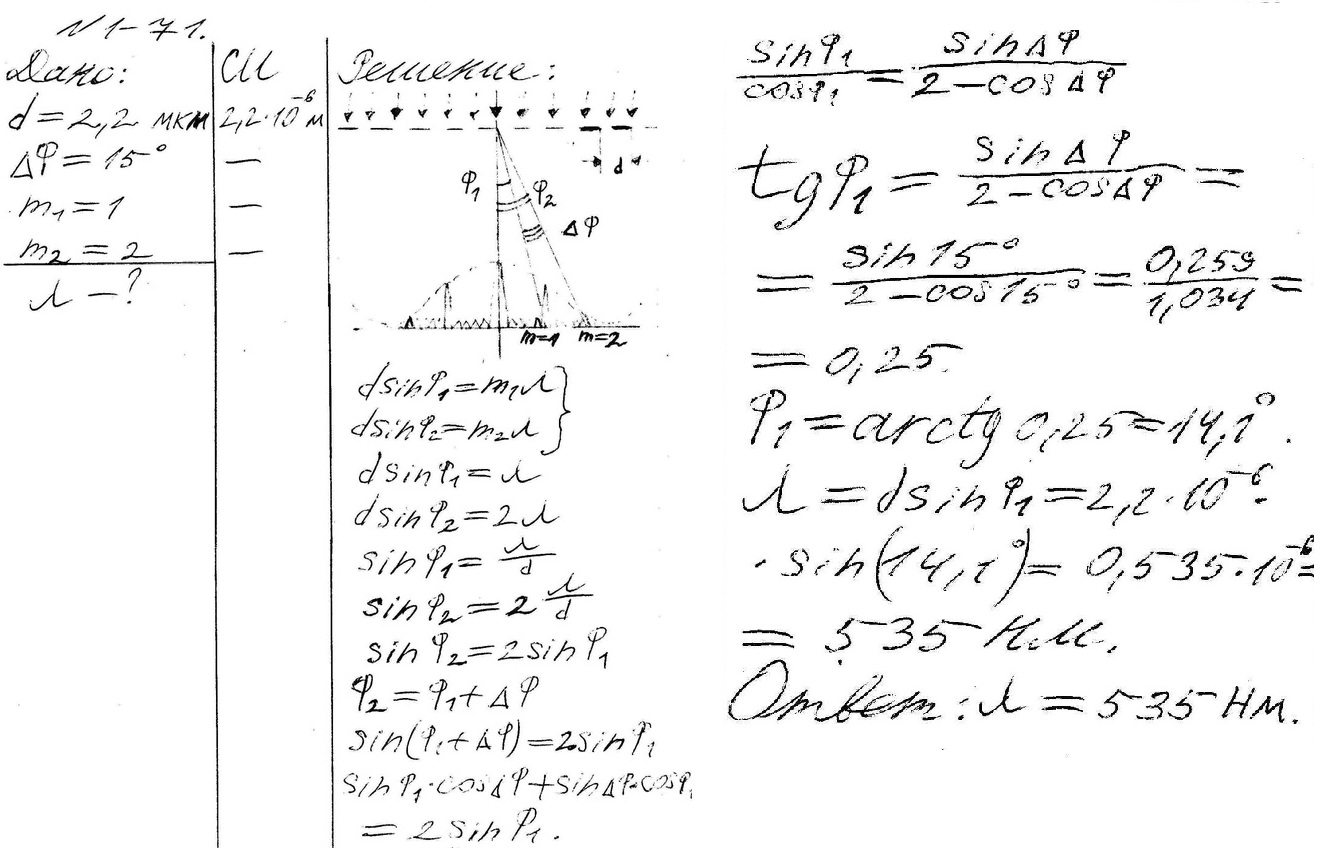 N 1-71.
Дано:
d = 2,2 мкм
Δφ = 15°
m₁ = 1
m₂ = 2
λ - ?
СИ
2,2·10⁻⁶ м
—
—
—
Решение:
d
φ₁ φ₂
Δφ
m=1 m=2
dsinφ₁ = m₁λ }
dsinφ₂ = m₂λ }
dsinφ₁ = λ
dsinφ₂ = 2λ
sinφ₁ = λ/d
sinφ₂ = 2 λ/d
sinφ₂ = 2sinφ₁
φ₂ = φ₁ + Δφ
sin(φ₁ + Δφ) = 2sinφ₁
sinφ₁·cosΔφ + sinΔφ·cosφ₁
= 2sinφ₁.
sinφ₁/cosφ₁ = sinΔφ/(2 - cosΔφ)
tgφ₁ = sinΔφ/(2 - cosΔφ) =
= sin15°/(2 - cos15°) = 0,259/1,034 =
= 0,25.
φ₁ = arctg 0,25 = 14,1°.
λ = dsinφ₁ = 2,2·10⁻⁶·
·sin(14,1°) = 0,535·10⁻⁶ =
= 535 нм.
Ответ: λ = 535 нм.